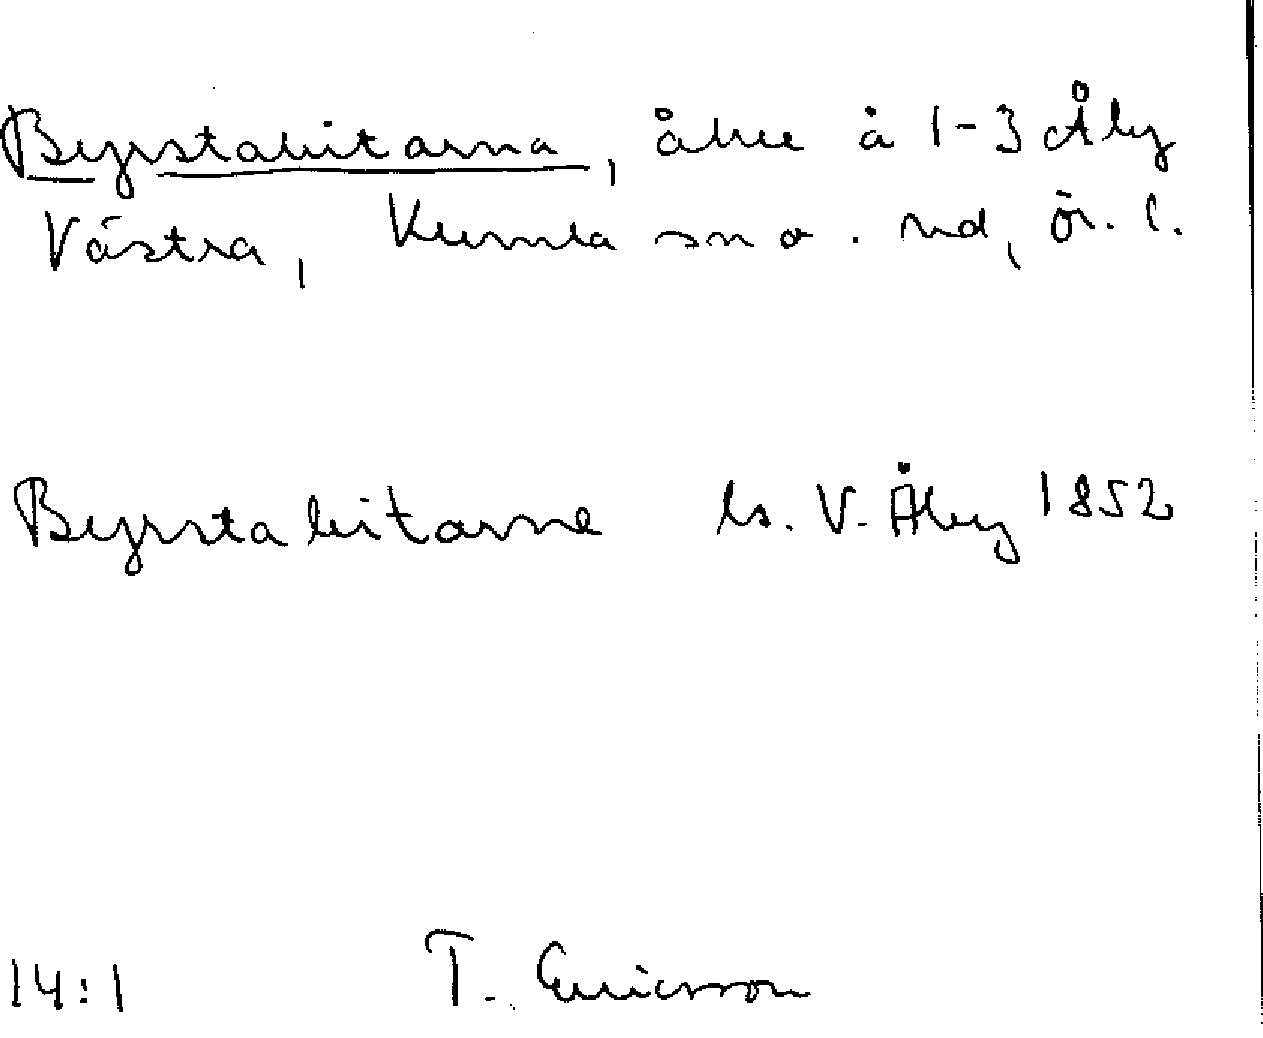 Byrstabitarna, åker å 1-3 Åby
Västra, Kumla sn o. hd, Ör. l.
Byrsta bitarne ls. V. Åby 1852
14:1 T. Ericsson